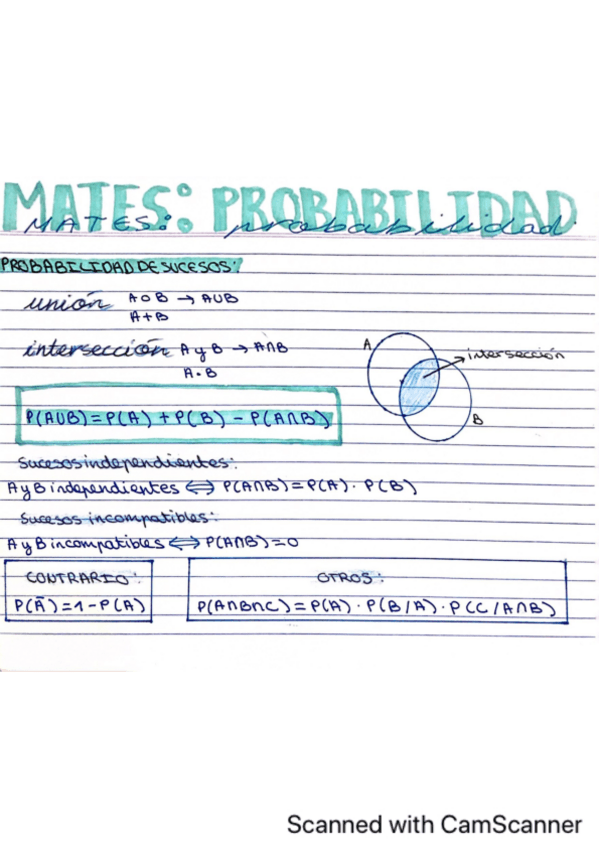 MATES: PROBABILIDAD
MATES: probabilidad
PROBABILIDAD DE SUCESOS:
unión A o B → A∪B
A+B
intersección A y B → A∩B
A·B
A
intersección
B
P(A∪B)=P(A)+P(B)-P(A∩B)
Sucesos independientes:
A y B independientes ⟺ P(A∩B)=P(A)·P(B)
Sucesos incompatibles:
A y B incompatibles ⟺ P(A∩B)=0
CONTRARIO:
P(Ā)=1-P(A)
OTROS:
P(A∩B∩C)=P(A)·P(B/A)·P(C/A∩B)
Scanned with CamScanner